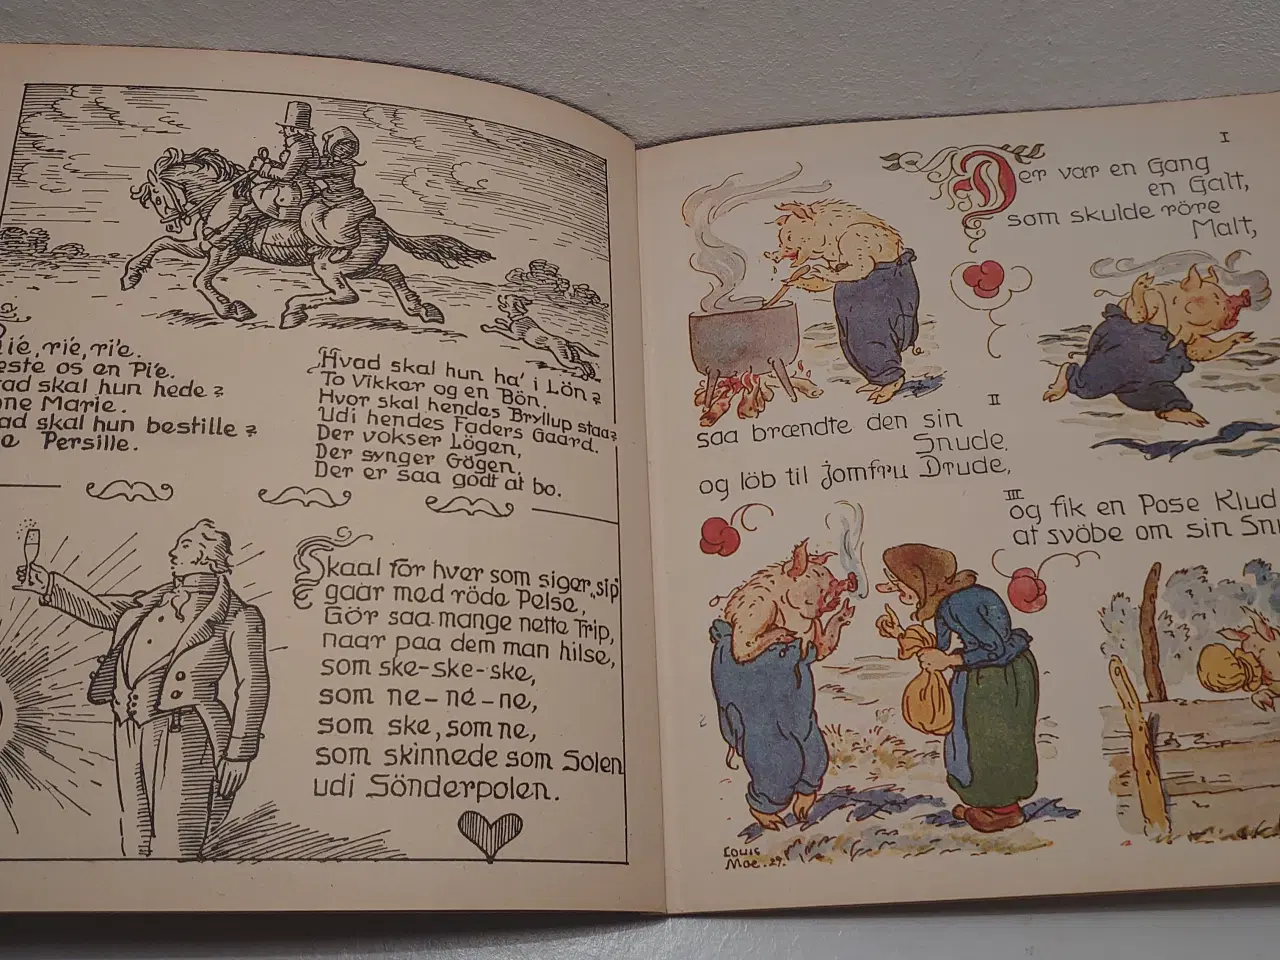 ie, rie, rie.
este os en Pie.
ad skal hun hede?
ne Marie.
ad skal hun bestille?
e Persille.
Hvad skal hun ha' i Lön?
To Vikkar og en Bön.
Hvor skal hendes Bryllup staa?
Udi hendes Faders Gaard.
Der vokser Lögen,
Der synger Gögen,
Der er saa godt at bo.
Skaal for hver som siger „sip"
gaar med röde Pelse,
Gör saa mange nette Trip,
naar paa dem man hilse,
som ske-ske-ske,
som ne-ne-ne,
som ske, som ne,
som skinnede som Solen
udi Sönderpolen.
I
Der var en Gang
en Galt,
som skulde röre
Malt,
II
saa brændte den sin
Snude,
og löb til jomfru Drude,
III
og fik en Pose Klud
at svöbe om sin Snu
Louis
Moe. 29.